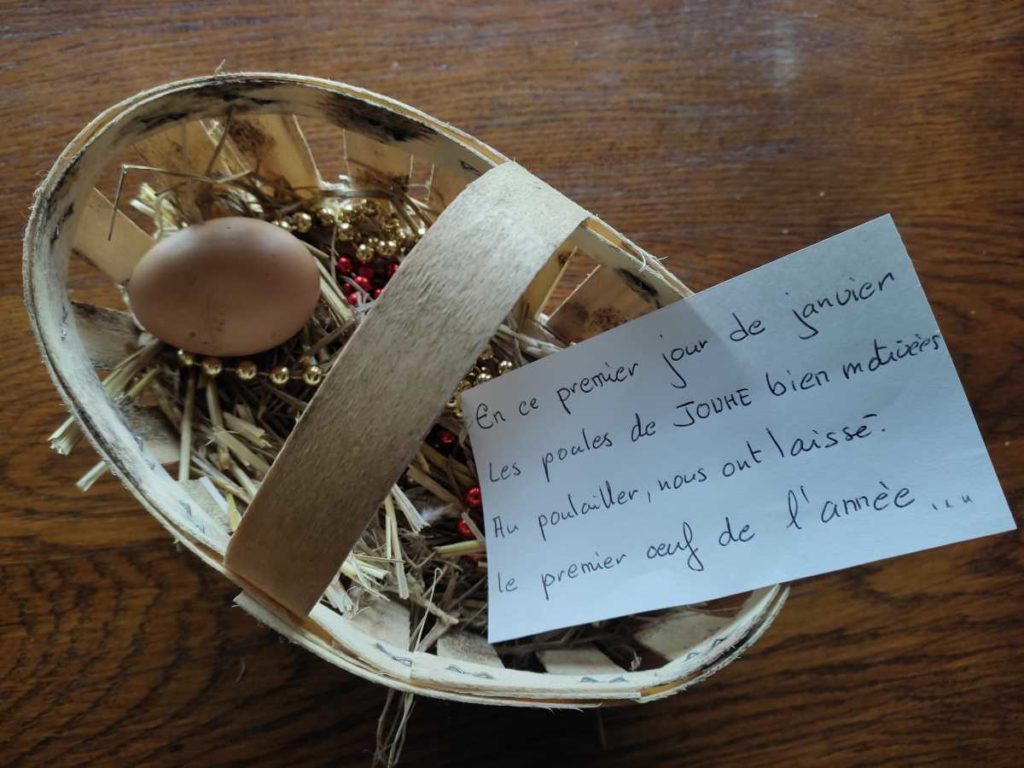 En ce premier jour de janvier
Les poules de JOUHE bien motivées
Au poulailler, nous ont laissé.
le premier œuf de l'année....